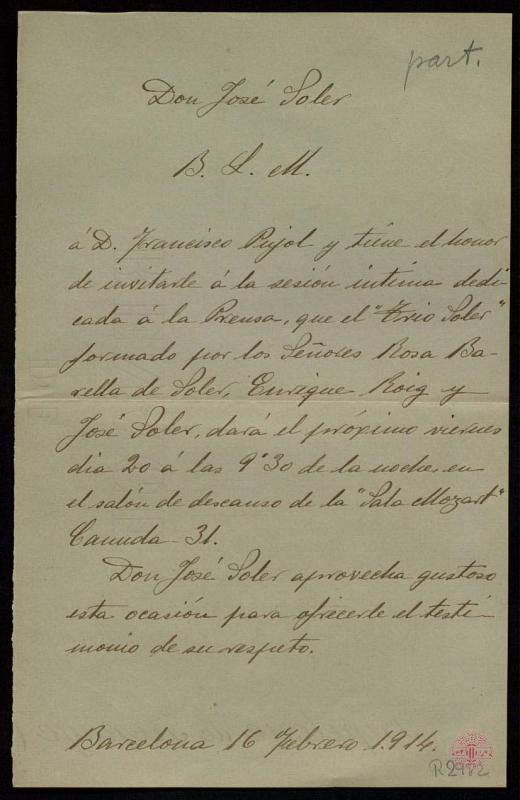 part.
Don José Soler
B. L. M.
á D. Francisco Pujol y tiene el honor
de invitarle á la sesión íntima dedi-
cada á la Prensa, que el "Trio Soler"
formado por los Señores Rosa Ba-
rella de Soler, Enrique Roig y
José Soler, dará el próximo viernes
dia 20 á las 9'30 de la noche, en
el salón de descanso de la "Sala Mozart"
Canuda-31.
Don José Soler aprovecha gustoso
esta ocasión para ofrecerle el testi-
monio de su respeto.
Barcelona 16 Febrero 1.914.
R2982